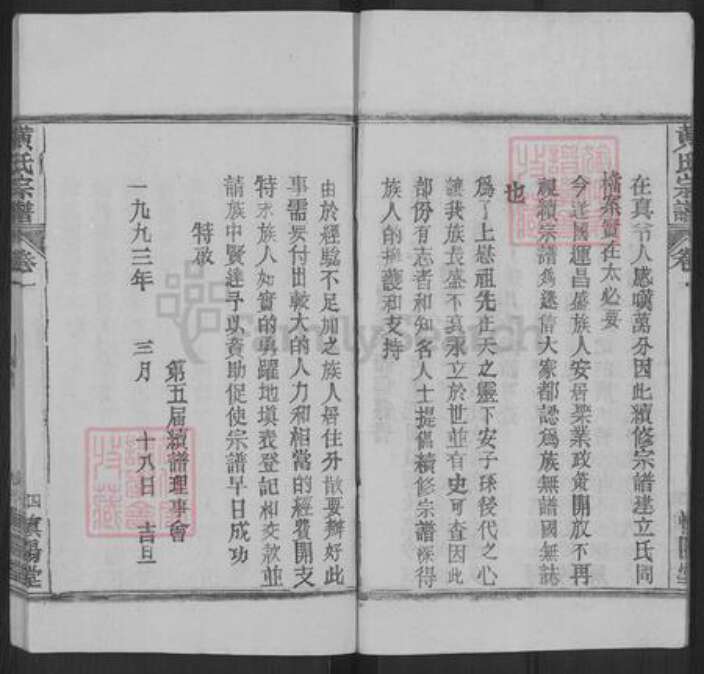 在真令人感嘆萬分因此續修宗譜建立氏同
檔案實在太必要
今逢國運昌盛族人安居樂業政策開放不再
視續宗譜為迷信大家都認為族無譜國無誌
也
為了上慰祖先在天之靈下安子孫後代之心
讓我族長盛不衰永立於世並有史可查因此
部份有志者和知名人士提倡續修宗譜深得
族人的擁護和支持
由於經驗不足加之族人居住分散要辦好此
事需要付出較大的人力和相當的經費開支
特求族人如實的踴躍地填表登記相交款並
請族中賢達予以資助促使宗譜早日成功
特啟
第五屆續譜理事會
一九九三年 三月 十八日 吉旦
黃氏宗譜
卷一
四
黃氏宗譜
卷一
FamilySearch